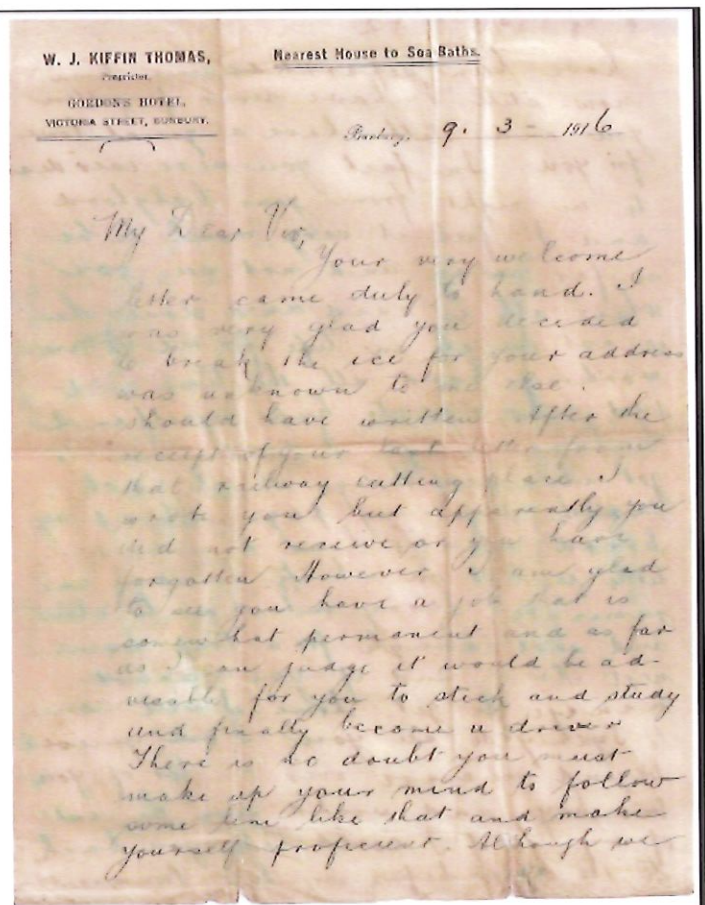 W. J. KIFFIN THOMAS,
Proprietor.
GORDON'S HOTEL,
VICTORIA STREET, BUNBURY.
Nearest House to Sea Baths.
Bunbury, 9. 3 - 1916
My Dear Vic,
Your very welcome
letter came duly to hand. I
was very glad you decided
to break the ice for your address
was unknown to me else I
should have written. After the
receipt of your last letter from
that railway cutting place I
wrote you but apparently you
did not receive or you have
forgotten However I am glad
to see you have a job that is
somewhat permanent and as far
as I can judge it would be ad-
visable for you to stick and study
and finally become a driver
There is no doubt you must
make up your mind to follow
some line like that and make
yourself proficient. Although we